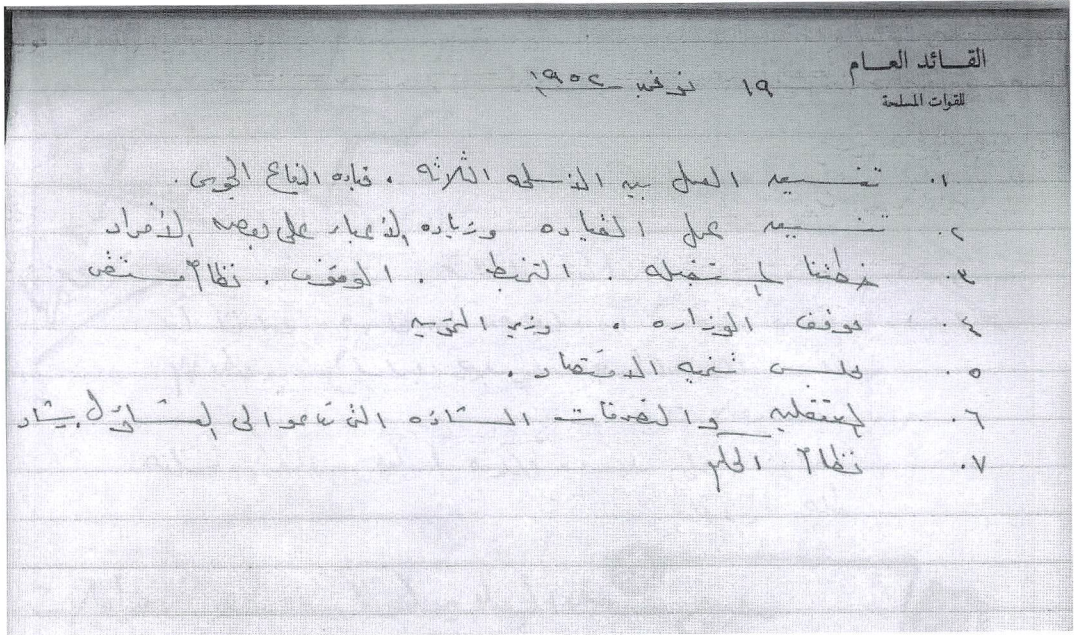 القائد العام
للقوات المسلحة
١٩ نوفمبر ١٩٥٢
١. تنسيق العمل بين الأسلحة الثلاثه . قياده الدفاع الجوى .
٢. تنسيق عمل القياده وزياده الأعباء على بعض الأفراد
٣. خطتنا المستقبله . . الوقوف . نظام
٤. موقف الوزاره . وزير التموين
٥. مجلس تنميه الاقتصاد .
٦. المعتقلين والتصرفات الشاذه التى تدعو الى التساؤل بشأن
٧. نظام الحكم